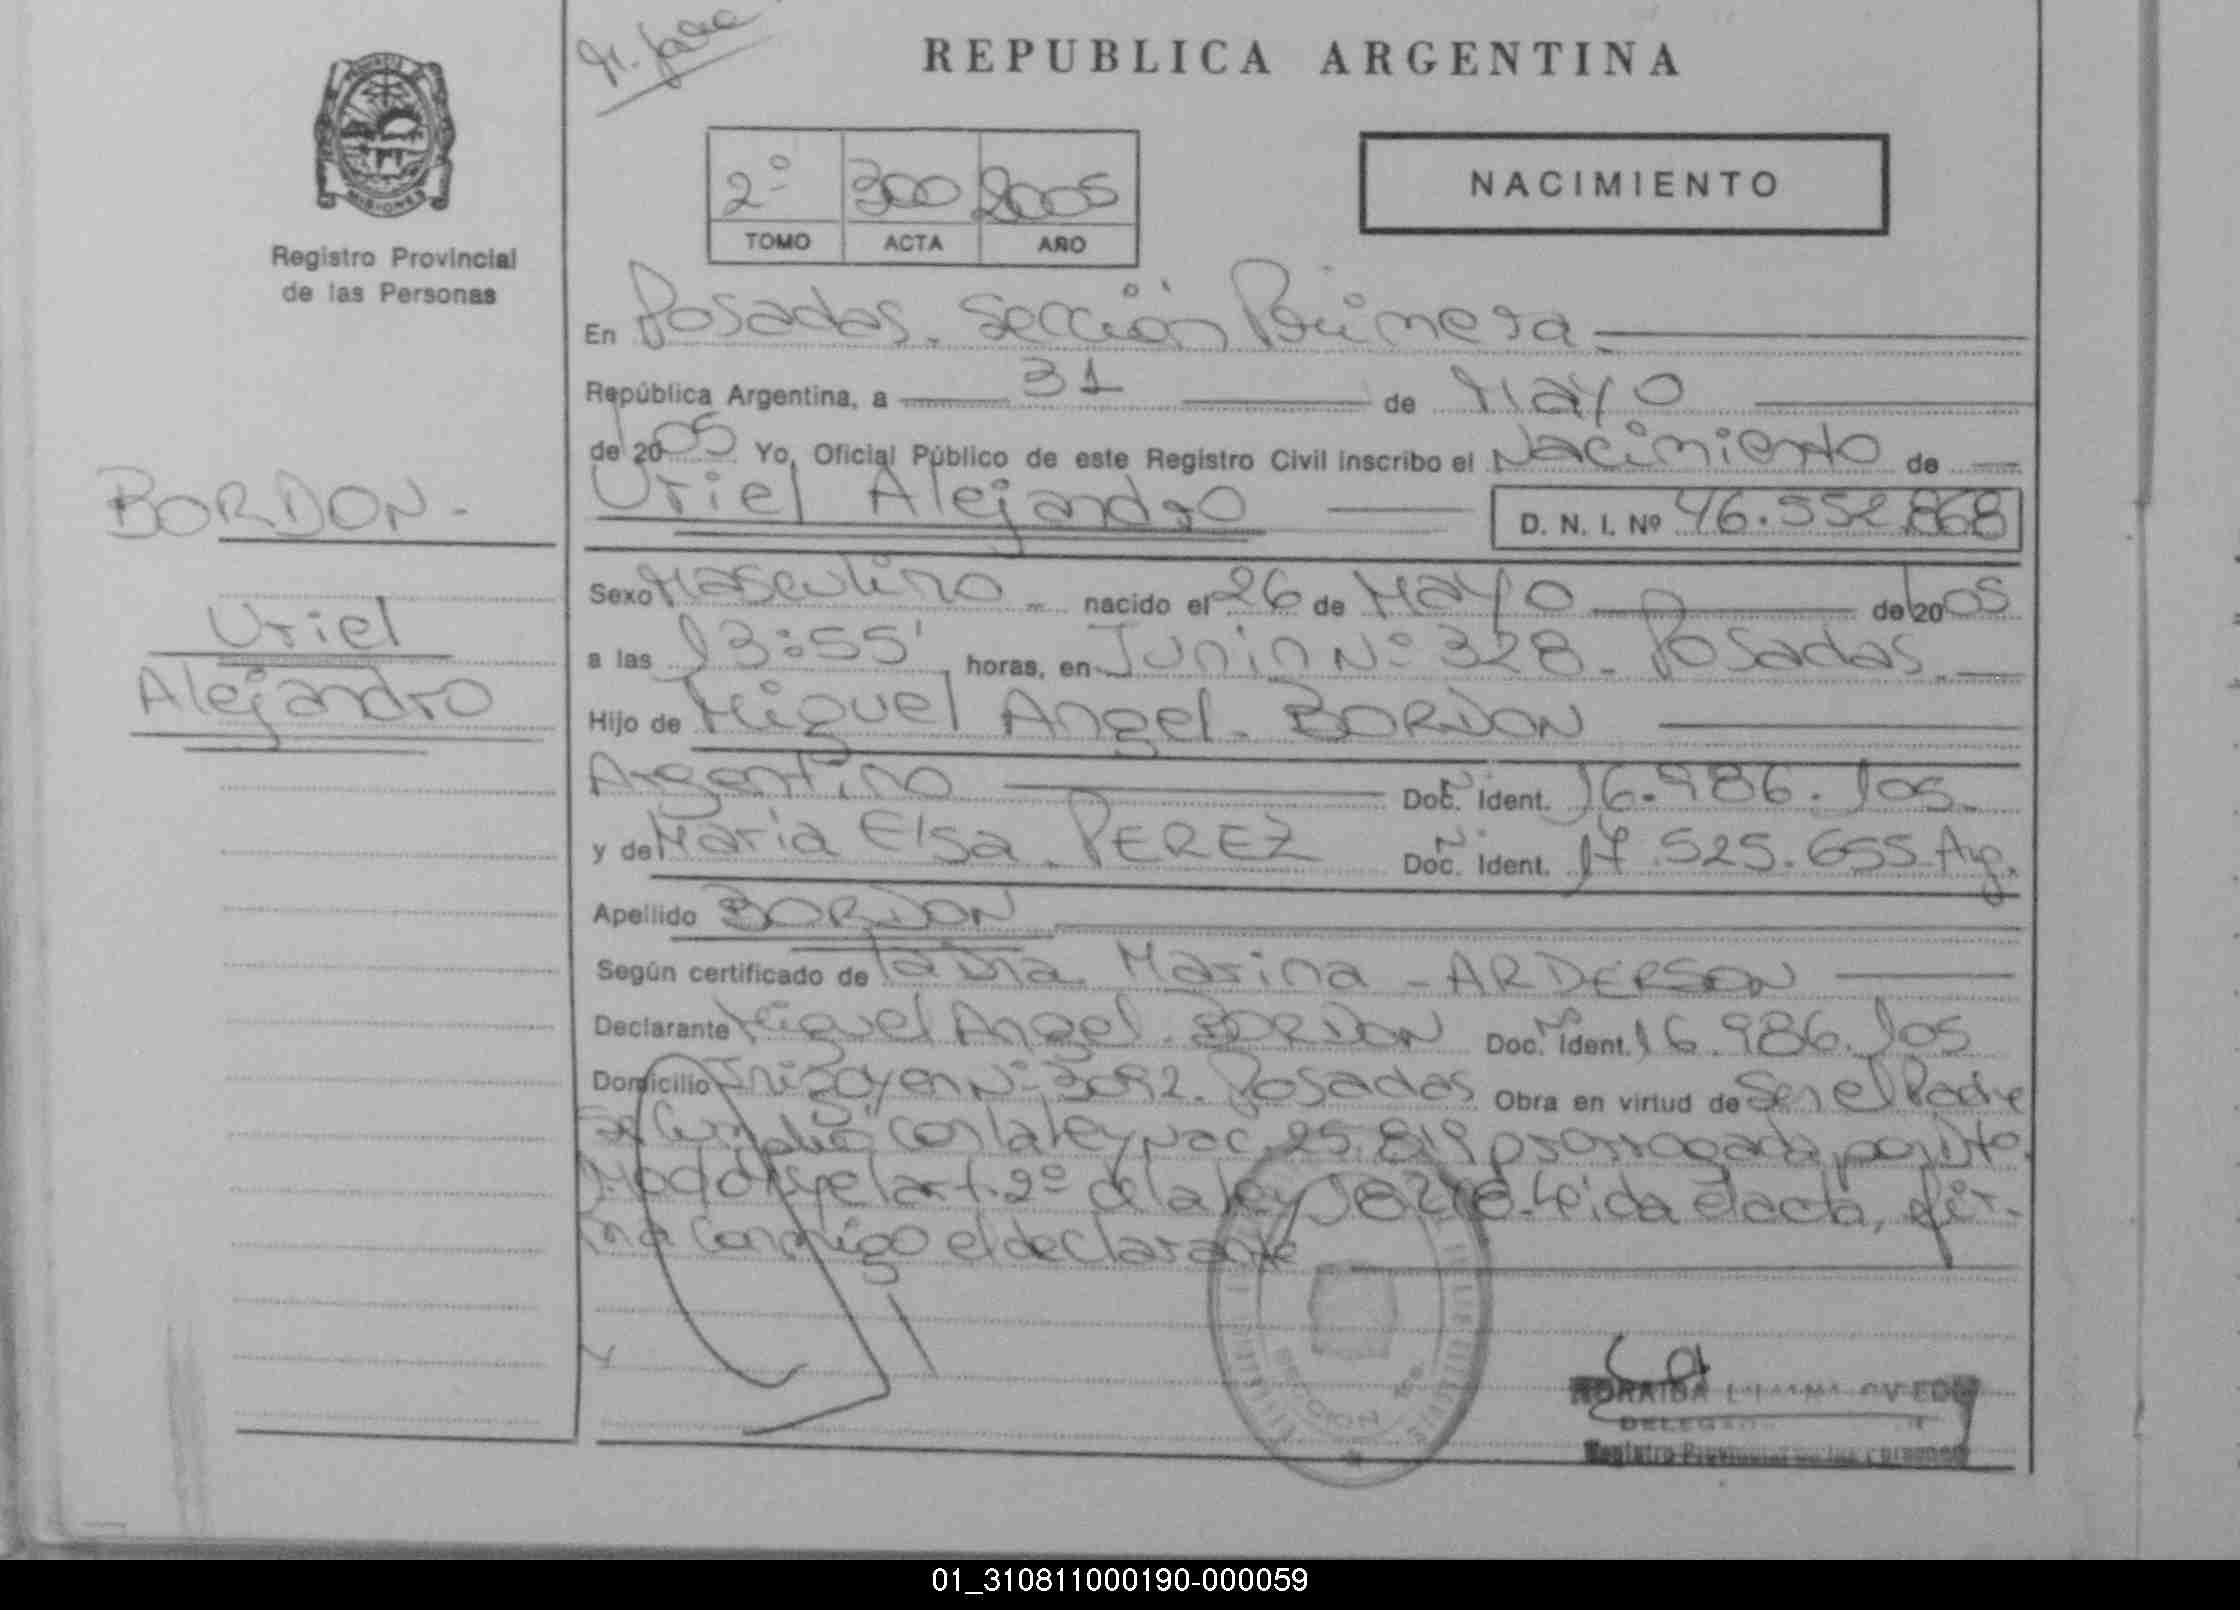 REPUBLICA ARGENTINA
PROVINCIA
MISIONES
Registro Provincial
de las Personas
2º 300 2005
TOMO ACTA AÑO
NACIMIENTO
En Posadas. Sección Primera
República Argentina, a 31 de Mayo
de 2005 Yo, Oficial Público de este Registro Civil inscribo el Nacimiento de
Uriel Alejandro D. N. I. Nº 46.552.868
BORDON.
Uriel
Alejandro
Sexo Masculino nacido el 26 de Mayo de 2005
a las 13:55' horas, en Junin Nº 328. Posadas.
Hijo de Miguel Angel. BORDON
Argentino Doc. Ident. 16.986.105.
y de Maria Elsa. PEREZ Doc. Ident. 17.525.655 Arg.
Apellido BORDON
Según certificado de la Dra. Marina - ARDERSON
Declarante Miguel Angel. BORDON Doc. Ident. 16.986.105
Domicilio Irigoyen Nº 3092. Posadas Obra en virtud de Ser el Padre
Se Cumplió con la ley nac. 25.819 prorrogada por Dto.
el art. 2º de la ley 18248. Leida el acta, fir-
ma Conmigo el declarante
SECCION 1ra.
OVIEDO
Registro Provincial de las Personas
01_310811000190-000059